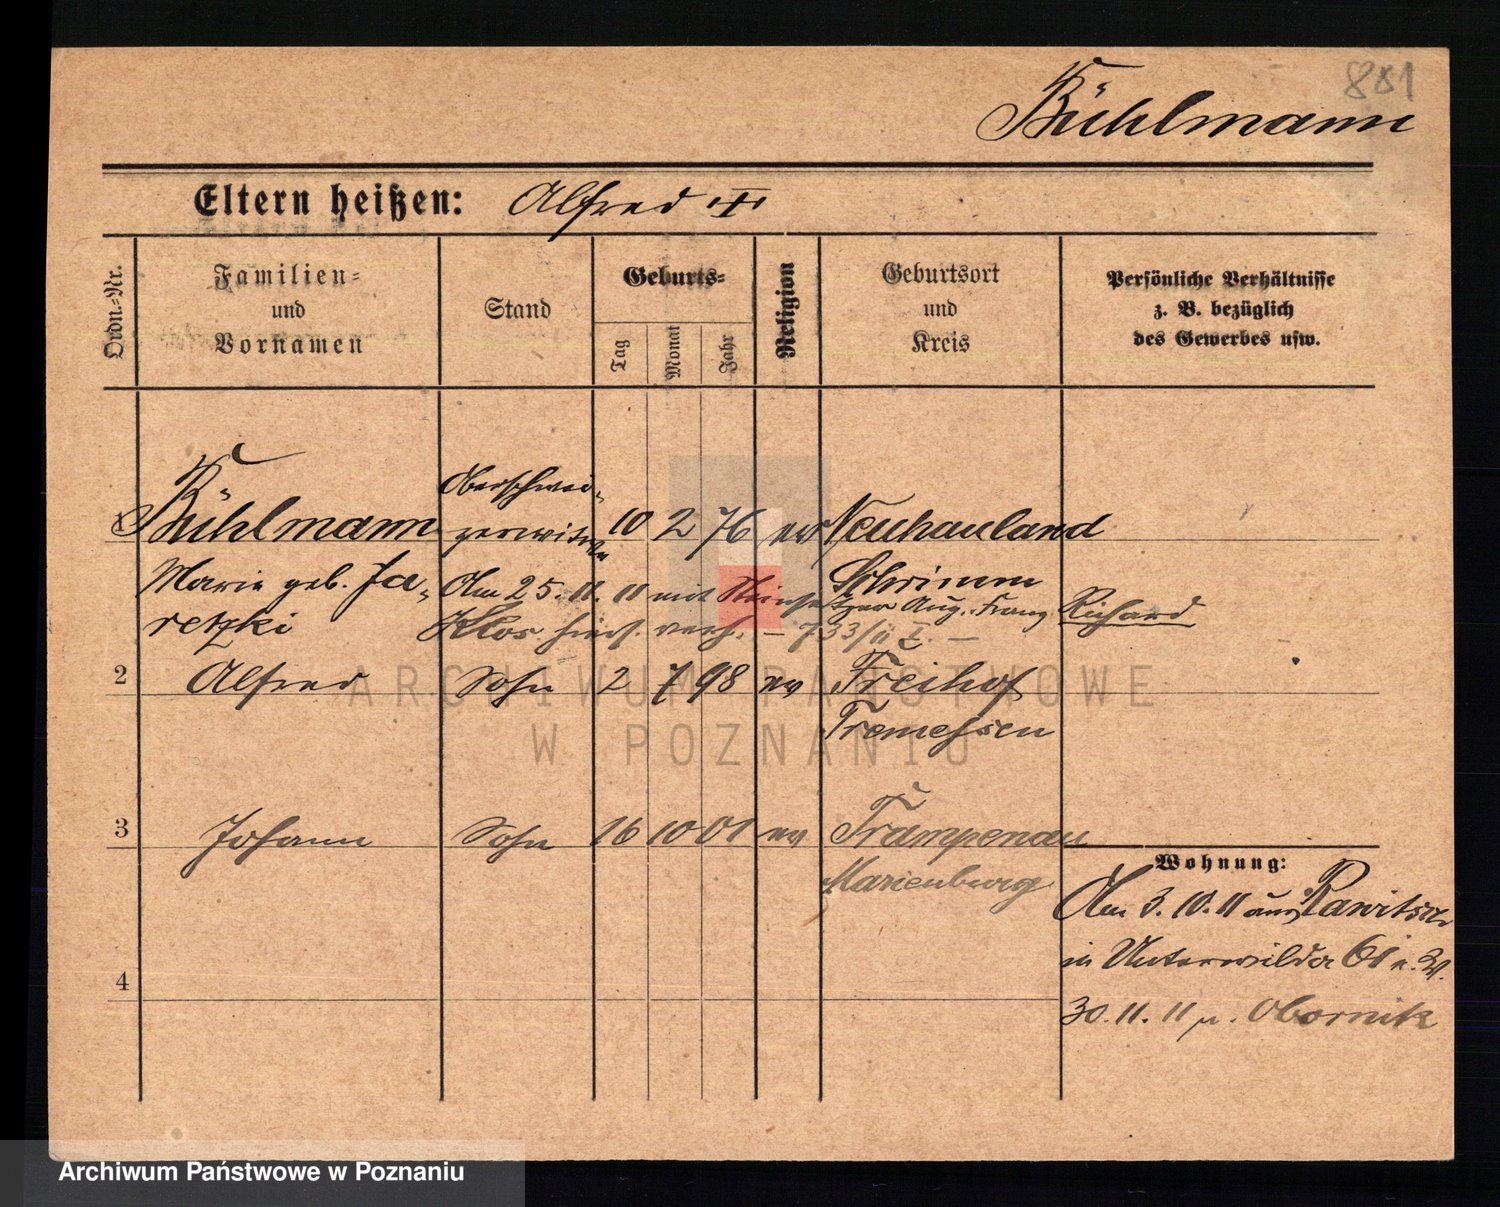 881
Bühlmann
Eltern heißen: Alfred
Ordn.-Nr.
Familien-
und
Vornamen
Stand
Geburts-
Tag
Monat
Jahr
Religion
Geburtsort
und
Kreis
Persönliche Verhältnisse
z. B. bezüglich
des Gewerbes usw.
1 Bühlmann Oberschwei-zerwitwe 10 2 76 ev Neuhauland
Marie geb. Ja- Am 25.11.11 mit Schrimm
retzki Klos verh. – 733/ii I. – Aug. Franz Richard
2 Alfred Sohn 2 7 98 ev Freihof
Tremessen
3 Johann Sohn 16 10 01 ev Trampenau
Marienburg
4
Wohnung:
Am 3.10.11 aus Rawitsch
in Unterwilda 61 n. W.
30.11.11 n. Obornik
ARCHIWUM PAŃSTWOWE
W POZNANIU
Archiwum Państwowe w Poznaniu